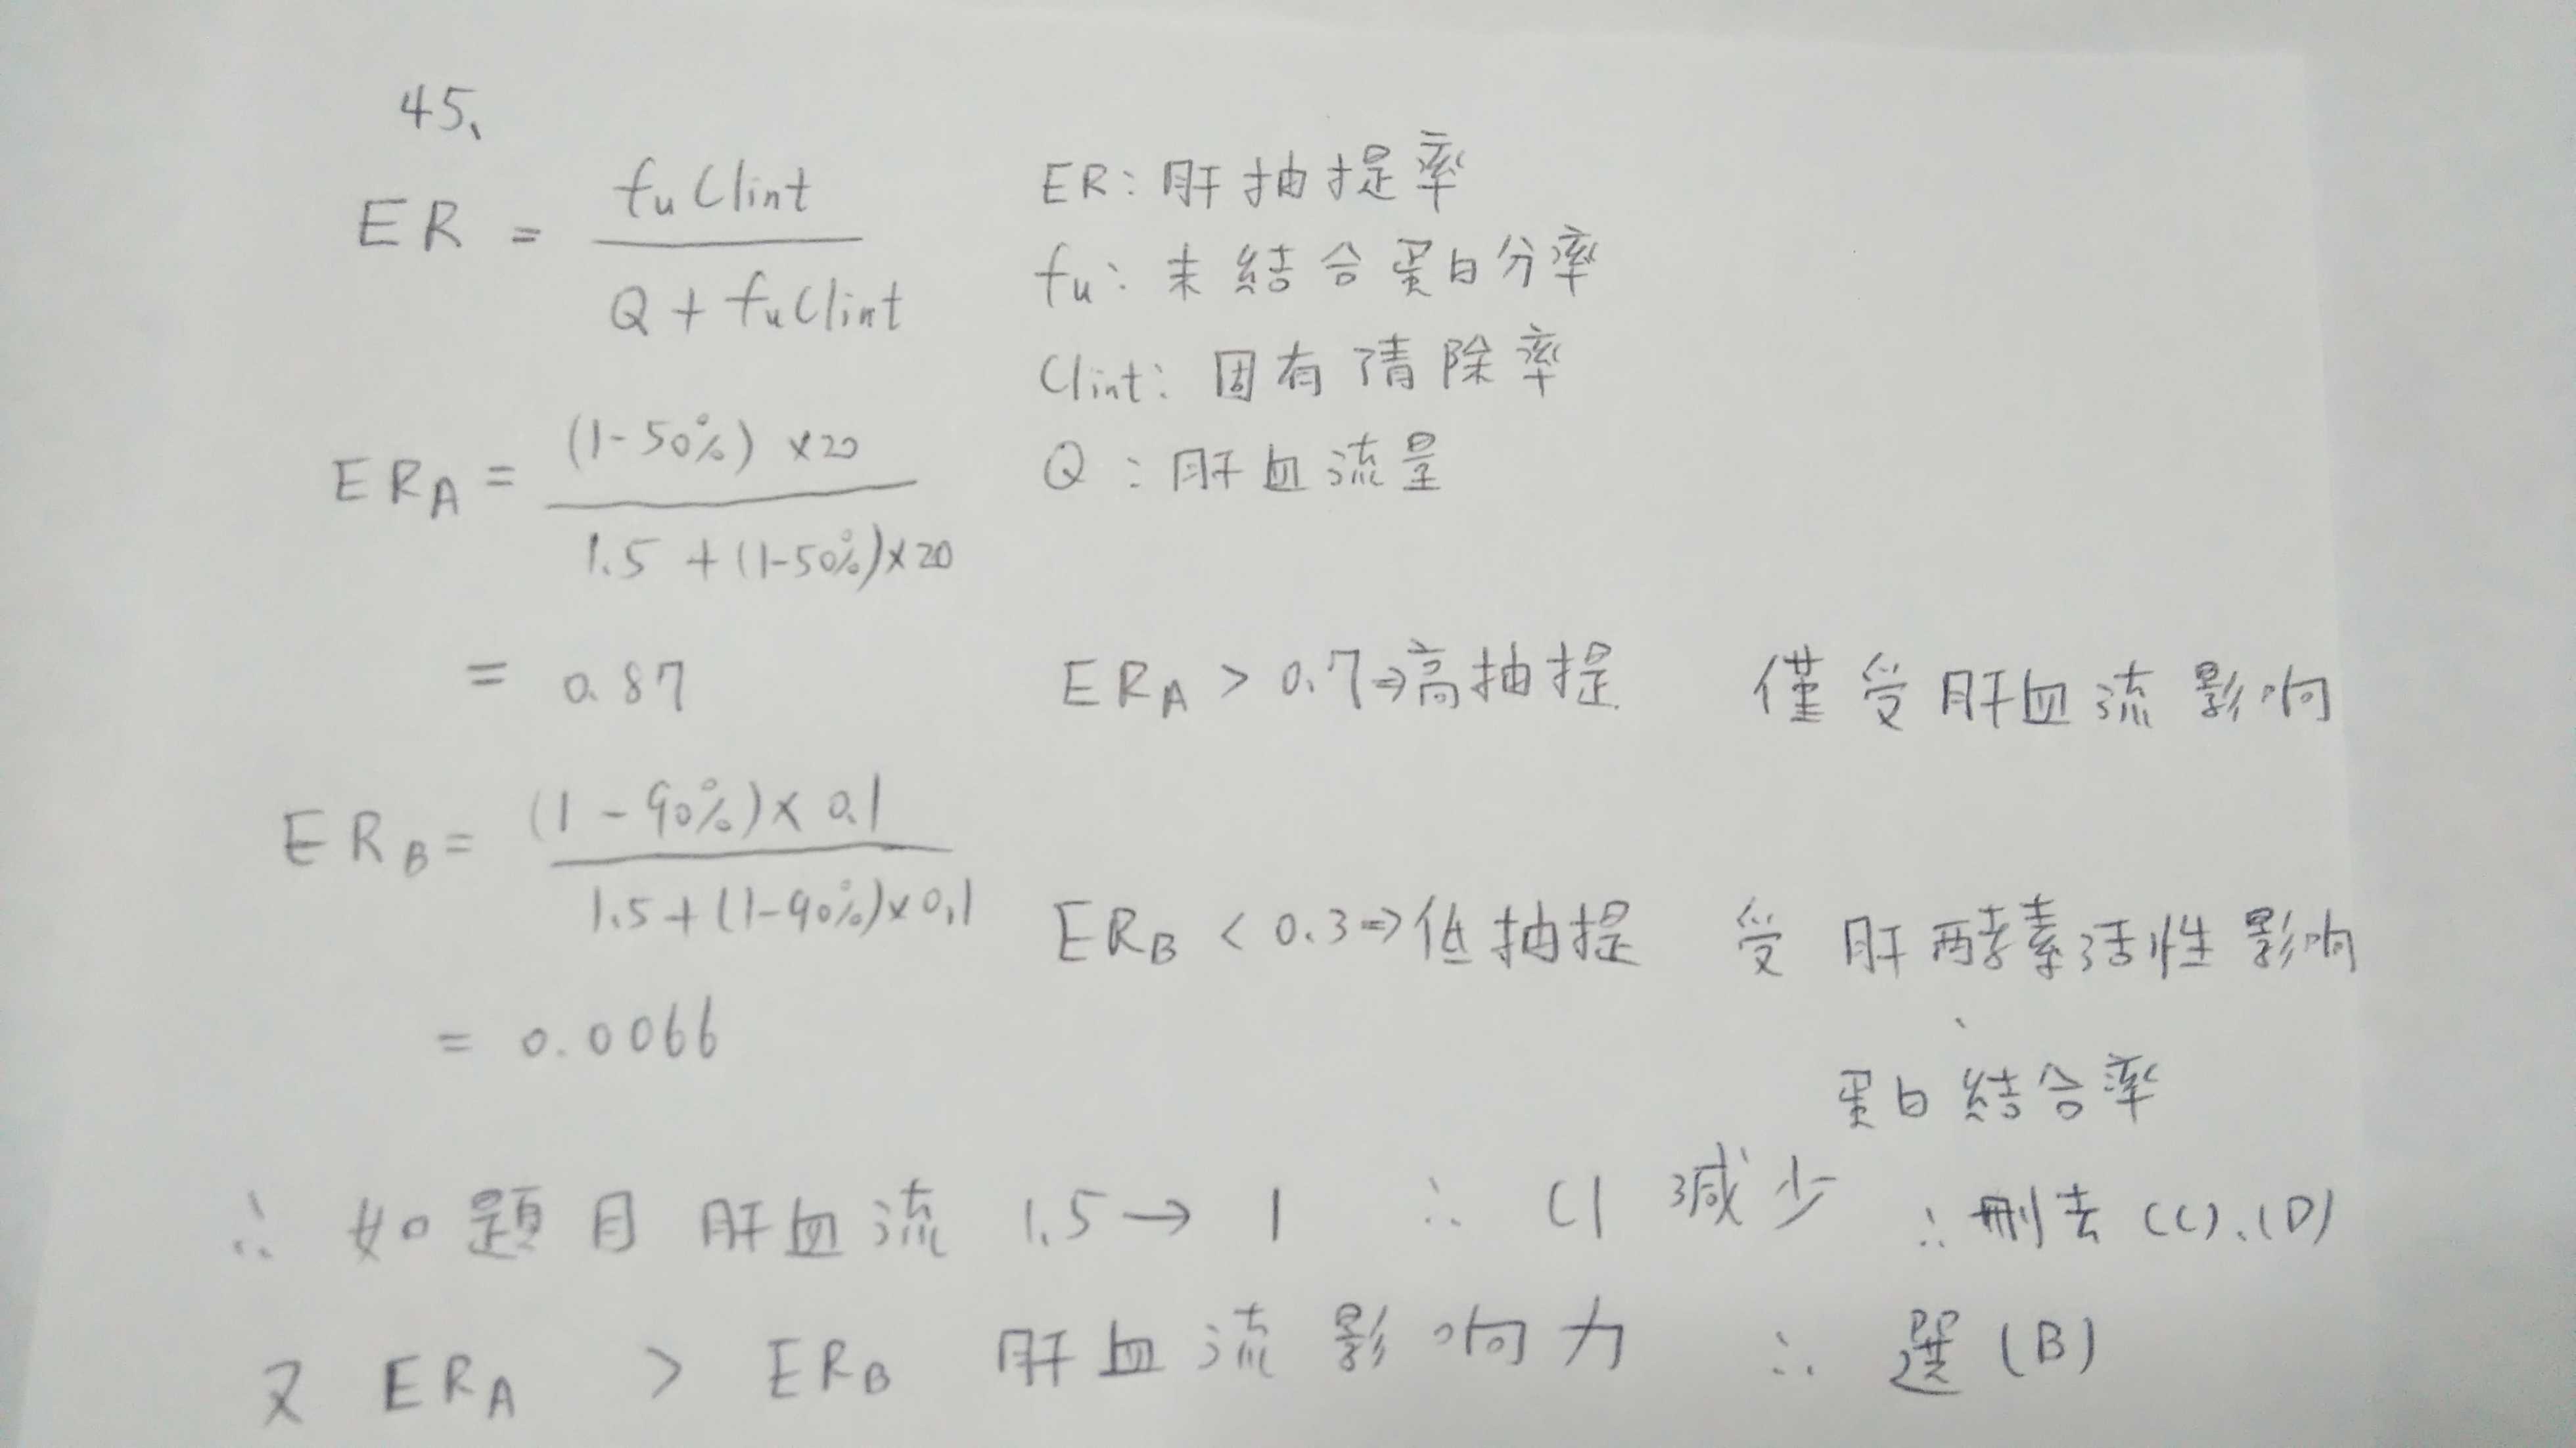 45、
ER = fu Clint / Q + fu Clint
ER：肝抽提率
fu：未結合蛋白分率
Clint：固有清除率
Q：肝血流量
ERA = (1-50%) ×20 / 1.5 + (1-50%)×20
= 0.87
ERA > 0.7⇒高抽提 僅受肝血流影响
ERB = (1-90%)× 0.1 / 1.5+(1-90%)×0.1
ERB < 0.3⇒低抽提 受肝酵素活性影响
、
= 0.0066
蛋白結合率
∴ 如題目肝血流 1.5→ 1 ∴ Cl 減少 ∴刪去 (C)、(D)
又 ERA > ERB 肝血流影响力 ∴ 選 (B)